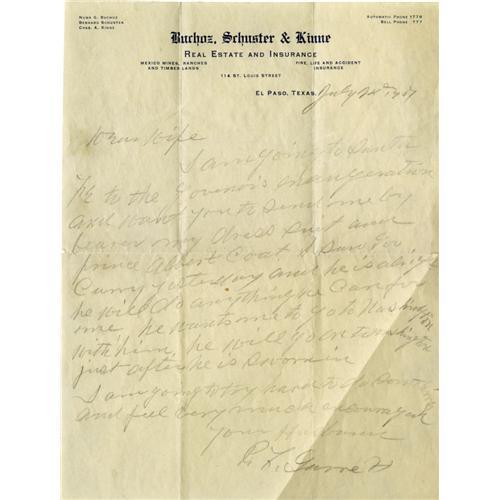 NUMA G. BUCHOZ
BERNARD SCHUSTER
CHAS. A. KINNE
AUTOMATIC PHONE 1778
BELL PHONE 777
Buchoz, Schuster & Kinne
REAL ESTATE AND INSURANCE
MEXICO MINES, RANCHES
AND TIMBER LANDS
FIRE, LIFE AND ACCIDENT
INSURANCE
114 ST. LOUIS STREET
EL PASO, TEXAS, July 1907
Dear Wife
I am going to Santa
Fe to the Govenor's
and want you to send me by
bearer my dress suit and
prince Albert Coat I saw Gov
Curry yesterday and he is
he will do anything he can for
me he wants me to go to Washington
with him he will go on to Washington
just after he is sworn in
I am going to try hard to do
and feel very much encouraged
Your Husband
P. F. Garrett